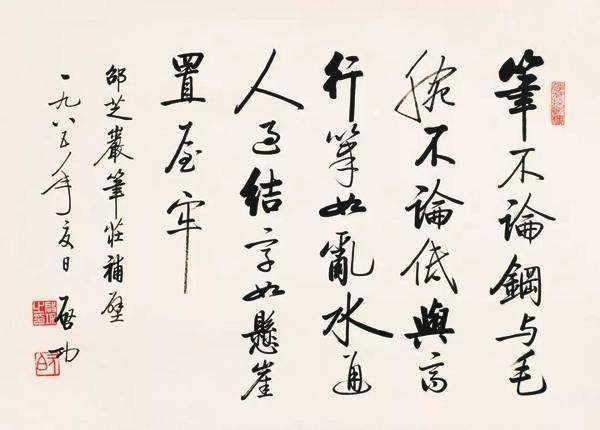 筆不論鋼与毛
腕不論低與高
行筆如亂水通
人過結字如懸崖
置屋牢
邵芝巖筆莊補壁
一九八五年夏日 啟功